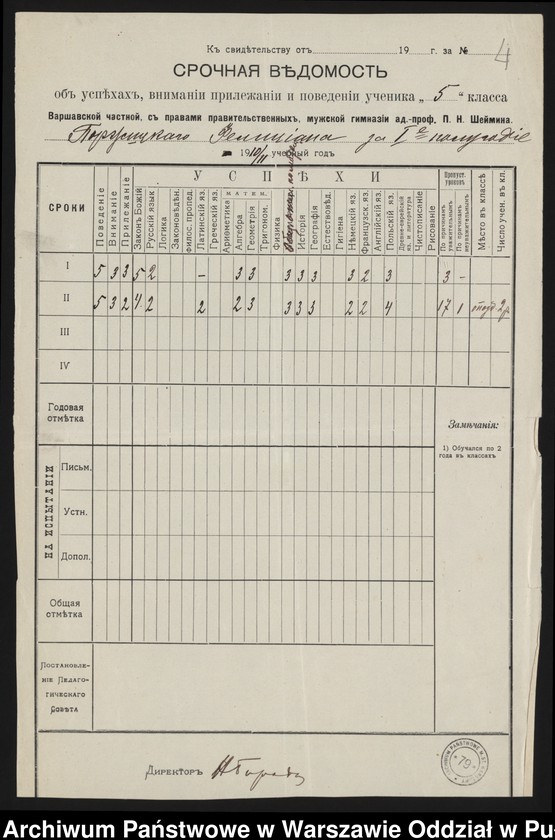 Къ свидѣтельству отъ 19 г. за №
4
СРОЧНАЯ ВѢДОМОСТЬ
объ успѣхахъ, вниманіи прилежаніи и поведеніи ученика „ 5 “ класса
Варшавской частной, съ правами правительственныхъ, мужской гимназіи ад.-проф. П. Н. Шеймина.
за I ое полугодіе
1910/11 учебный годъ
СРОКИ
Поведеніе
Вниманіе
Прилежаніе
УСПѢХИ
Законъ Божій
Русскій языкъ
Логика
Законовѣдѣн.
Филос. пропед.
Латинскій яз.
Греческій яз.
Ариометика
МАТЕМ.
Алгебра
Геометрія
Тригоном.
Физика
Исторія
Географія
Естествовѣд.
Гигіена
Нѣмецкій яз.
Французск. яз.
Англійскій яз.
Польскій яз.
Древне-еврейскій яз. и литература
Рисованіе
Чистописаніе
Пропуст. уроковъ
По причинамъ уважительнымъ
По причинамъ неуважительнымъ
Мѣсто въ классѣ
Число учен. въ кл.
I 5 3 3 5 2 – 3 3 3 3 3 3 2 3 3 –
II 5 3 2 4 2 2 2 3 3 3 3 2 2 4 17 1
III
IV
Годовая отмѣтка
НА ИСПЫТАНІИ
Письм.
Устн.
Допол.
Общая отмѣтка
Постановленіе Педагогическаго Совѣта
Замѣчанія:
1) Обучался по 2
года въ классахъ
Директоръ
79
Archiwum Państwowe w Warszawie Oddział w Pu